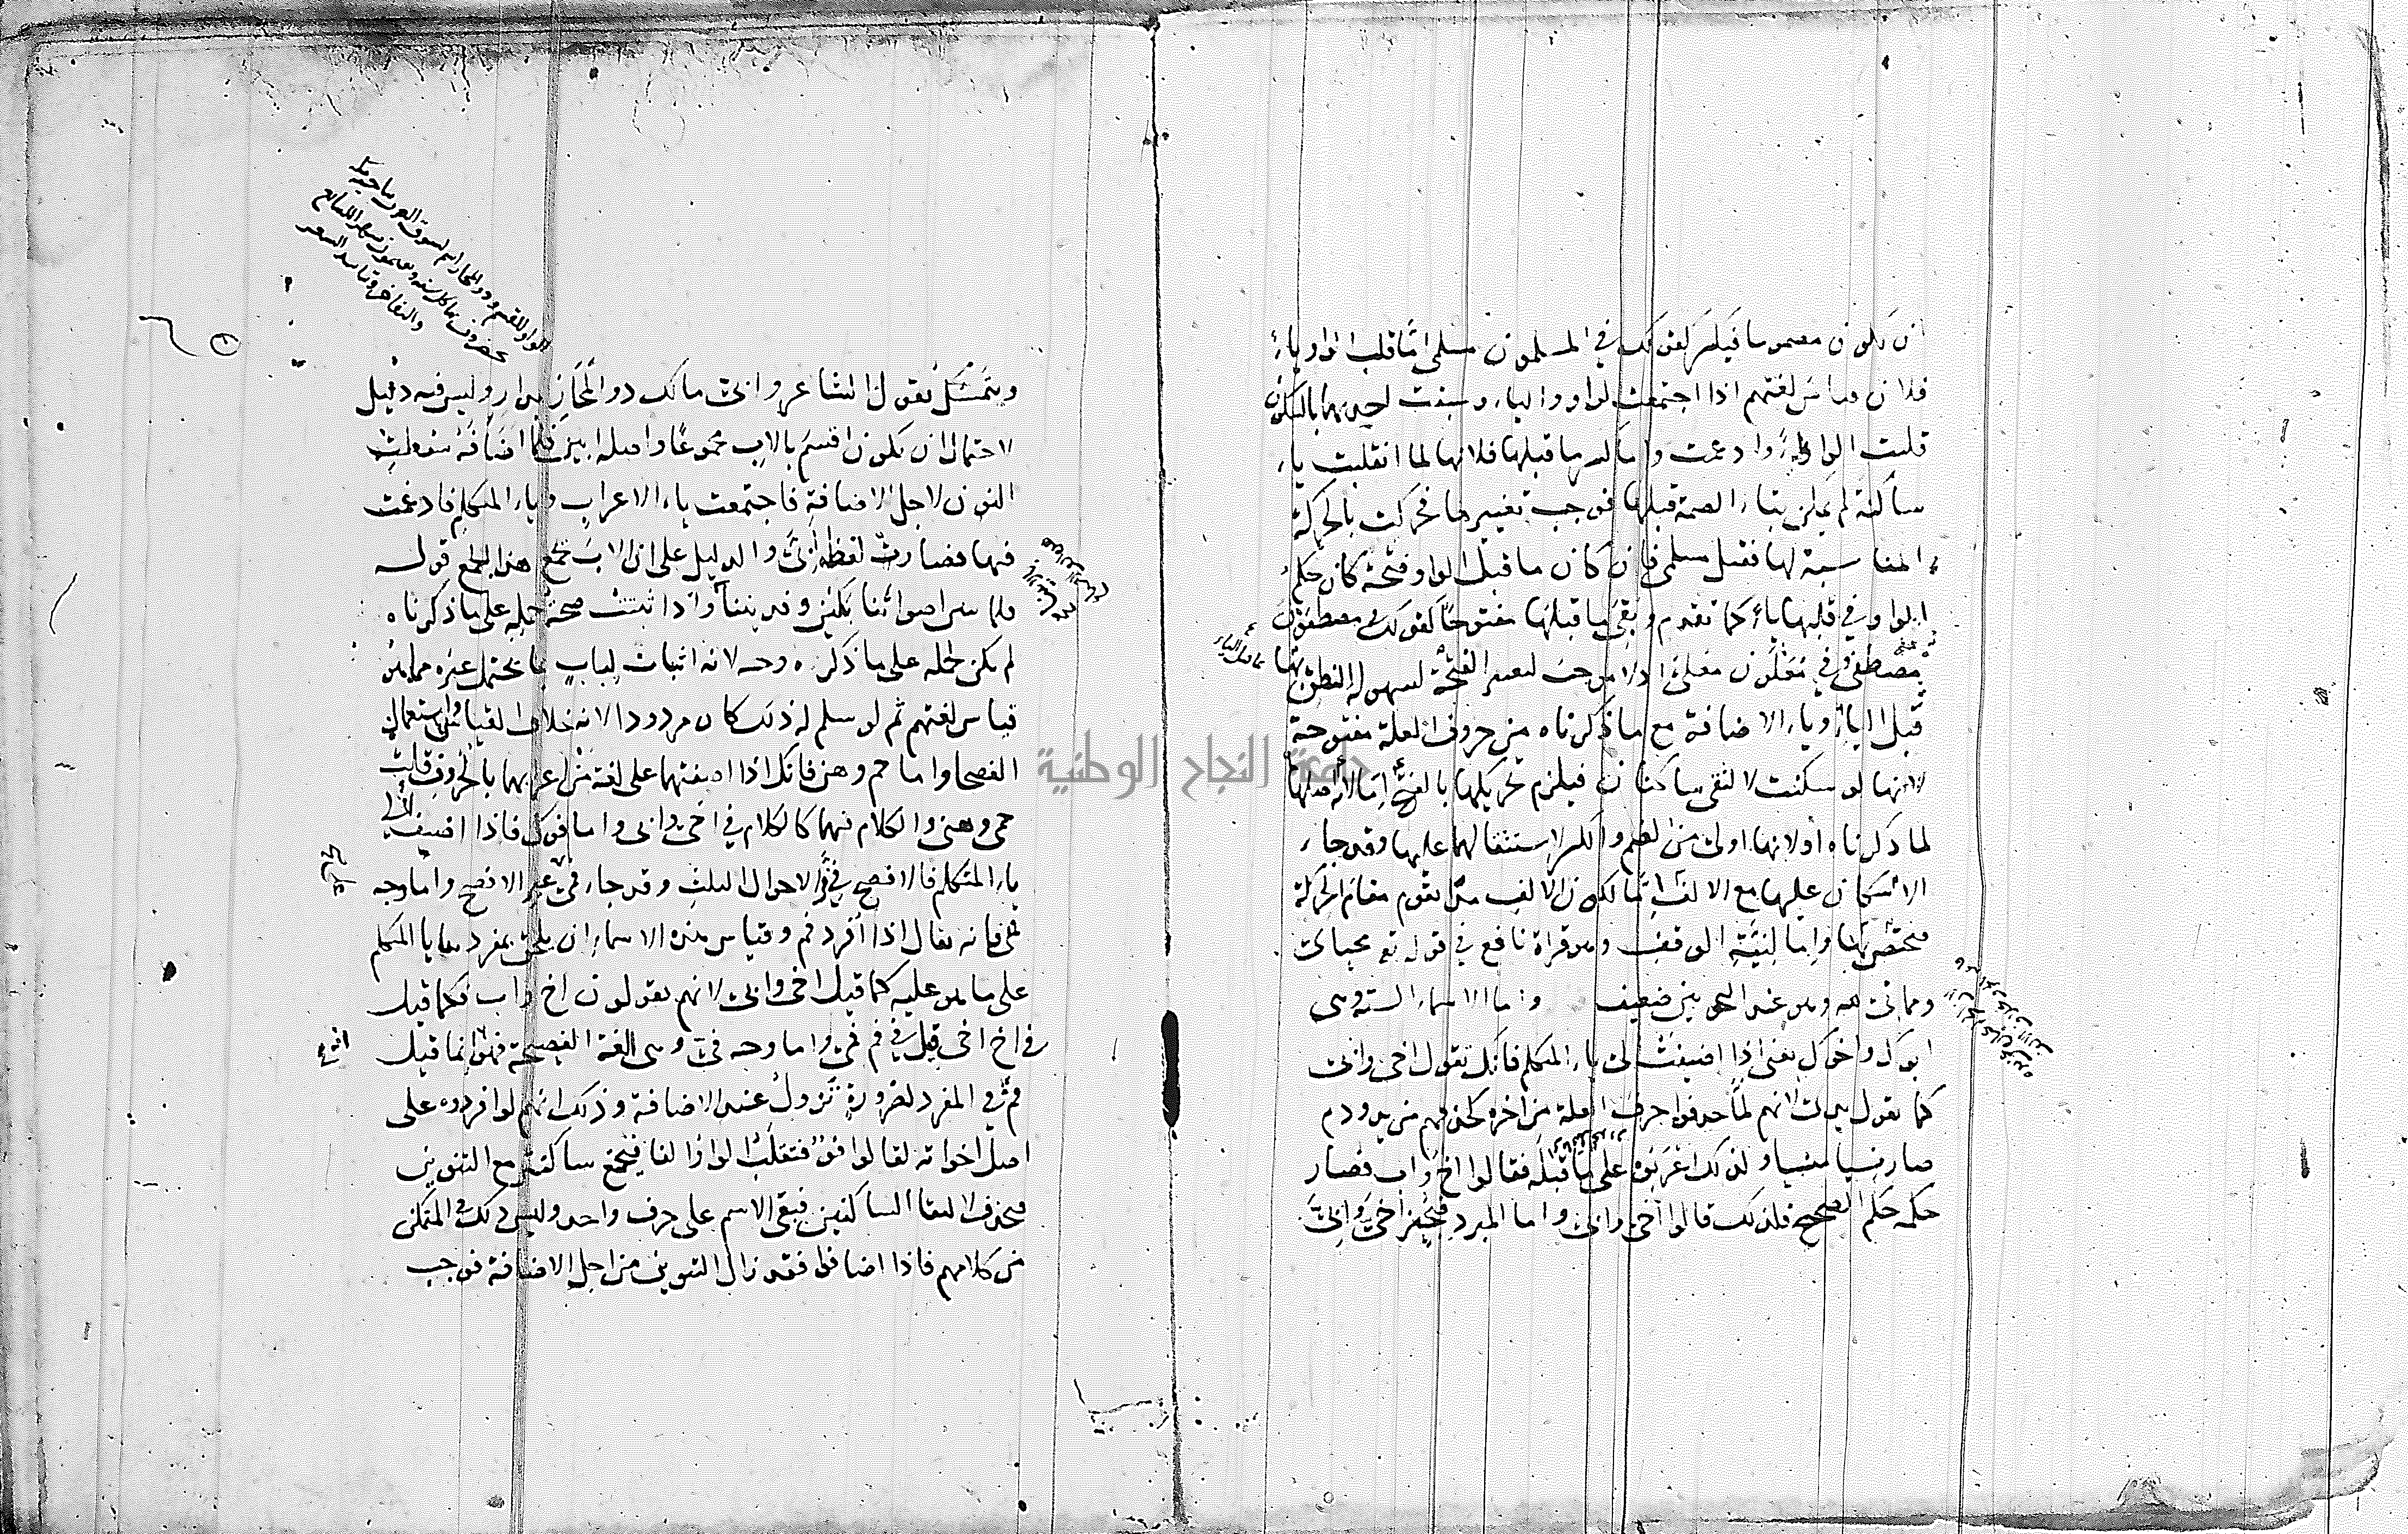 ان يكون مضموما قبلها كقولك في المسلمون مسلمي اما قلب الواو ياء
فلان قياس لغتهم اذا اجتمعت الواو والياء وسبقت احديهما بالسكون
قلبت الواو ياء وادغمت واما كسر ما قبلها فلانها لما انقلبت ياء
ساكنة لم يمكن بقاء الضمة قبلها فوجب تغييرها فحركت بالحركة
المناسبة لها فقيل مسلمي فان كان ما قبل الواو فتحة كان حكم
الواو في قلبها ياء كما تقدم وبقي ما قبلها مفتوحا كقولك في مصطفون
مصطفي وفي معلون معلي اذ لا موجب لتغيير الفتحة لسهولة النطق بها
قبل الياء وياء الاضافة مع ما ذكرناه من حروف العلة مفتوحة
لانها لو سكنت لالتقى ساكنان فيلزم تحريكها بالفتح اما لانه اصلها
لما ذكرناه او لانها اولى من الضم والكسر لاستثقالهما عليها وقد جاء
الاسكان عليها مع الالف اما لكون الالف مدا يقوم مقام الحركة
فتختص بها واما لنية الوقف وهو قراة نافع في قوله تع محياي
ومماتي لله وهو عند النحويين ضعيف واما الاسماء الستة وهي
ابوك واخوك يعني اذا اضيفت الى ياء المتكلم فانك تقول اخي وابي
كما تقول يدي لانهم لما حذفوا حرف العلة من اخره كحذفهم من يد ودم
صار نسيا منسيا ولذلك اعربوه على ما قبله فقالوا اخ واب فصار
حكمه حكم الصحيح فلذلك قالوا اخي وابي واما المبرد فيجيز اخي وابي
ويتمسك بقول الشاعر وابي مالك ذو المجاز بدار وليس فيه دليل
لاحتمال ان يكون اقسم بالاب مجموعا واصله ابين فلما اضافه سقطت
النون لاجل الاضافة فاجتمعت ياء الاعراب وياء المتكلم فادغمت
فيها فصارت لفظة ابي والدليل على ان الاب يجمع هذا الجمع قوله
فلما اصواتنا بكين وفديننا واذا ثبتت صحة حمله على ما ذكرناه
لم يكن حمله على ما ذكره وجه لانه اثبات لباب بما يحتمل غيره مما يرد
قياس لغتهم ثم لو سلم له ذلك كان مردودا لانه خلاف القياس واستعمال
الفصحا واما حم وهن فانك اذا اضفتهما على لغة من اعربهما بالحروف قلت
حمي وهني والكلام فيهما كالكلام في اخي وابي واما فوك فاذا اضيف الى
ياء المتكلم فالافصح في في الاحوال الثلث وقد جاء فمي غير الافصح واما وجه
فمي فانه يقال اذا افرد فم وقياس هذه الاسماء ان يلحق بمفردها يا المتكلم
على ما هو عليه كما قيل اخي وابي لانهم يقولون اخ واب فكما قيل
في اخ اخي قيل في فم فمي واما وجه في وهي اللغة الفصيحة فهو انما قيل
فم في المفرد لضرورة تزول عند الاضافة وذلك انهم لو افردوه على
اصل اخواته لقالوا فو فتقلب الواو الفا فتجتمع ساكنة مع التنوين
فتحذف لالتقا الساكنين فيبقى الاسم على حرف واحد وليس ذلك في المتمكن
من كلامهم فاذا اضافوا فقد زال التنوين من اجل الاضافة فوجب
جامعة النجاح الوطنية